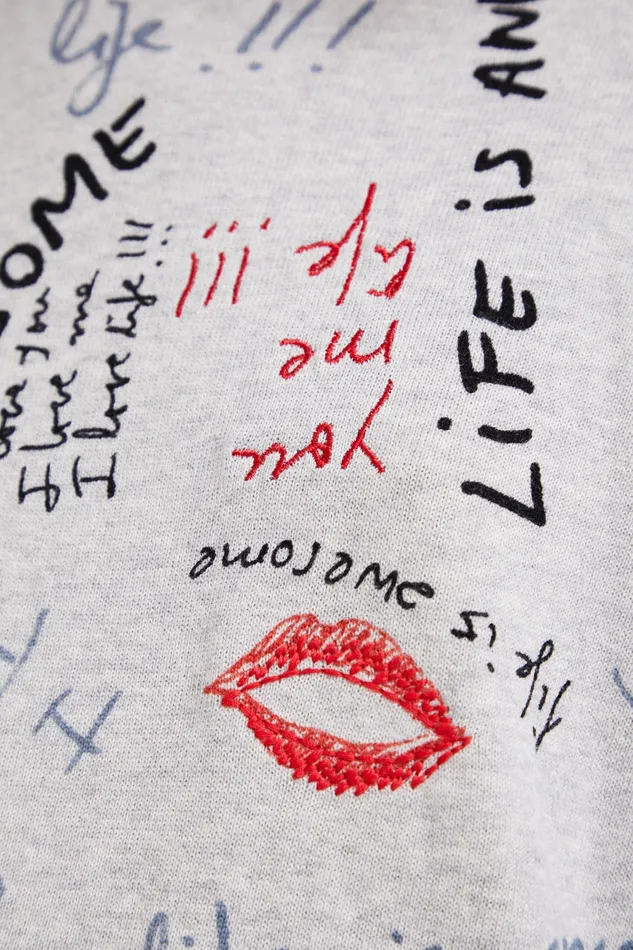 life !!!
OME
love you
I love me
I love life !!!
LiFE iS AN
you
me
life !!!
life is awesome
I
life is